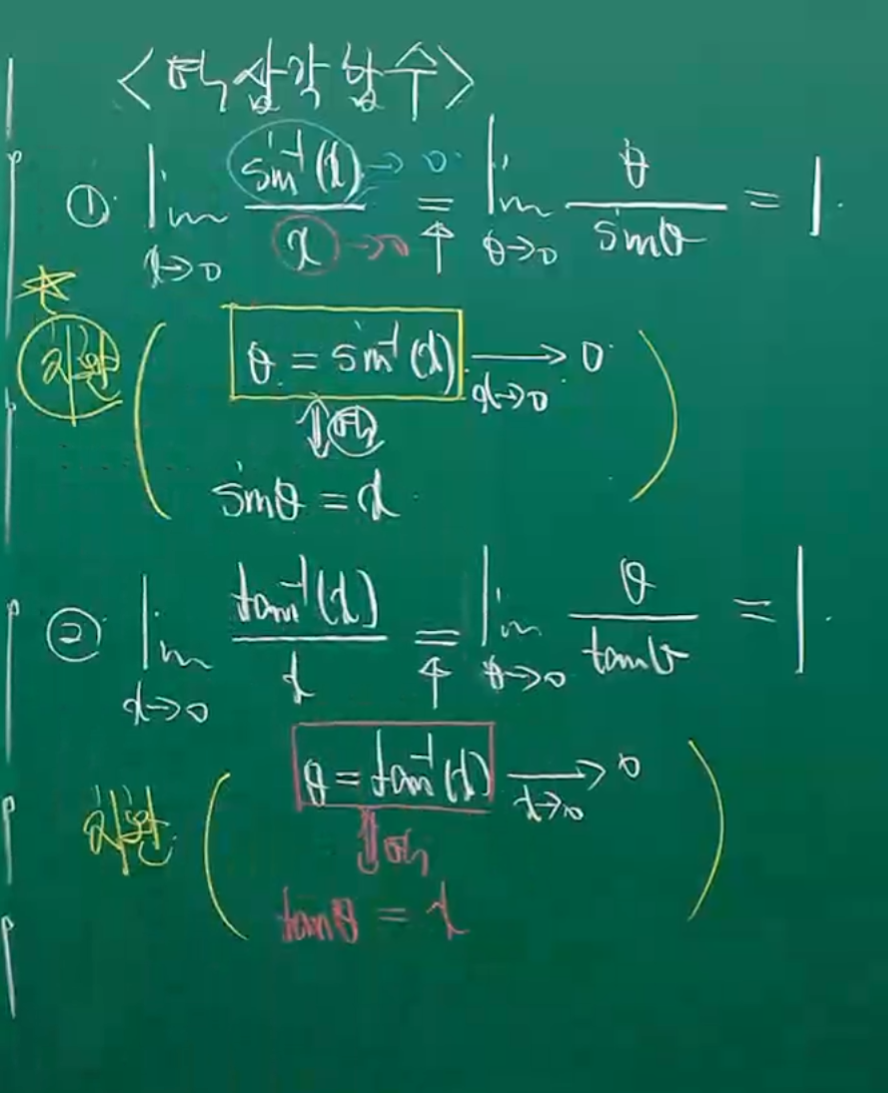 <역삼각함수>
① lim x→0 sin⁻¹(x)/x → 0 → 0 = ↑ lim θ→0 θ/sinθ = 1.
치환 ( θ = sin⁻¹(x) → x→0 0
↕ 역
sinθ = x )
② lim x→0 tan⁻¹(x)/x = ↑ lim θ→0 θ/tanθ = 1.
치환 ( θ = tan⁻¹(x) → x→0 0
↕ 역
tanθ = x )